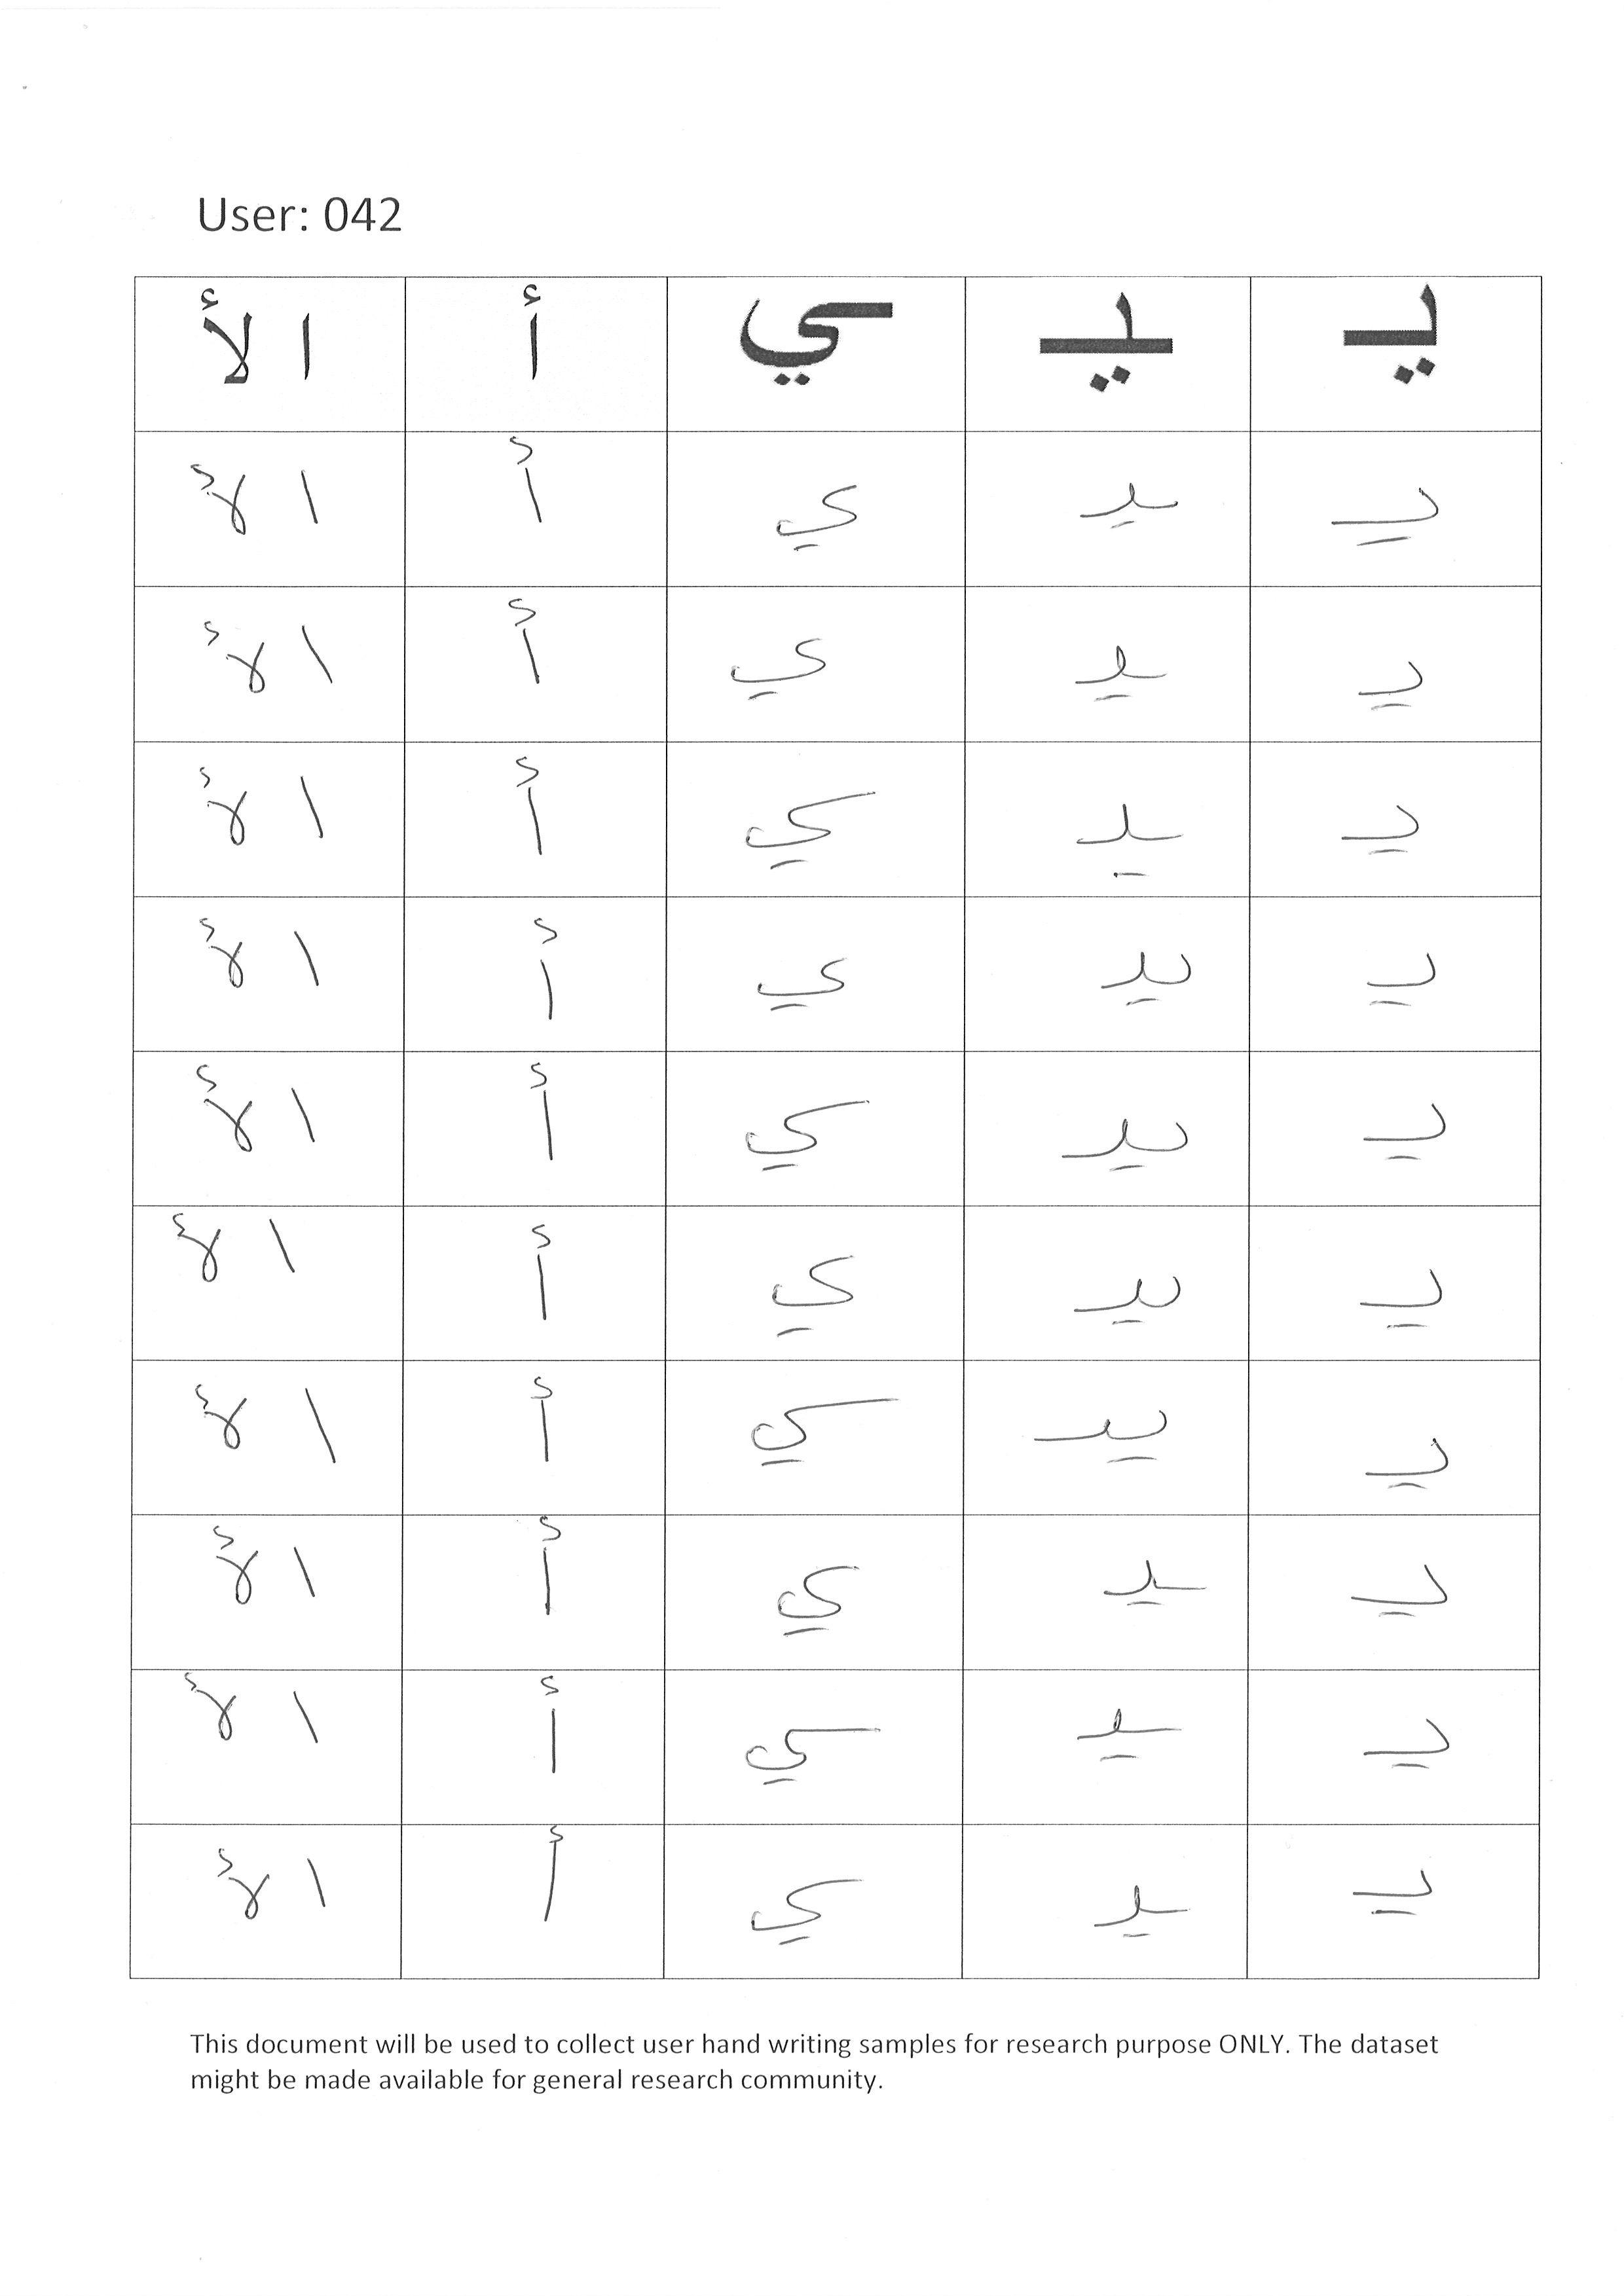 User: 042
يـ ـيـ ـي أ ا لأ
يـ ـيـ ي أ ا لأ
يـ ـيـ ي أ ا لأ
يـ ـيـ ي أ ا لأ
يـ ـيـ ي أ ا لأ
يـ ـيـ ي أ ا لأ
يـ ـيـ ي أ ا لأ
يـ ـيـ ي أ ا لأ
يـ ـيـ ي أ ا لأ
يـ ـيـ ـي أ ا لأ
يـ ـيـ ي أ ا لأ
This document will be used to collect user hand writing samples for research purpose ONLY. The dataset
might be made available for general research community.